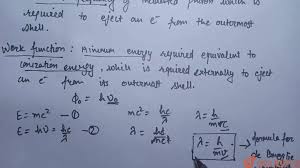 of incident photon which is
required to eject an e⁻ from the outermost
shell.
Work function : Minimum energy required equivalent to
ionization energy, which is required externally to eject
an e⁻ from its outermost shell.
ϕ₀ = hν₀
E = mc² - ① mc² = hc/λ λ = h/mv
E = hν = hc/λ - ② λ = hc/mc² λ = h/mv → formula for
de Broglie